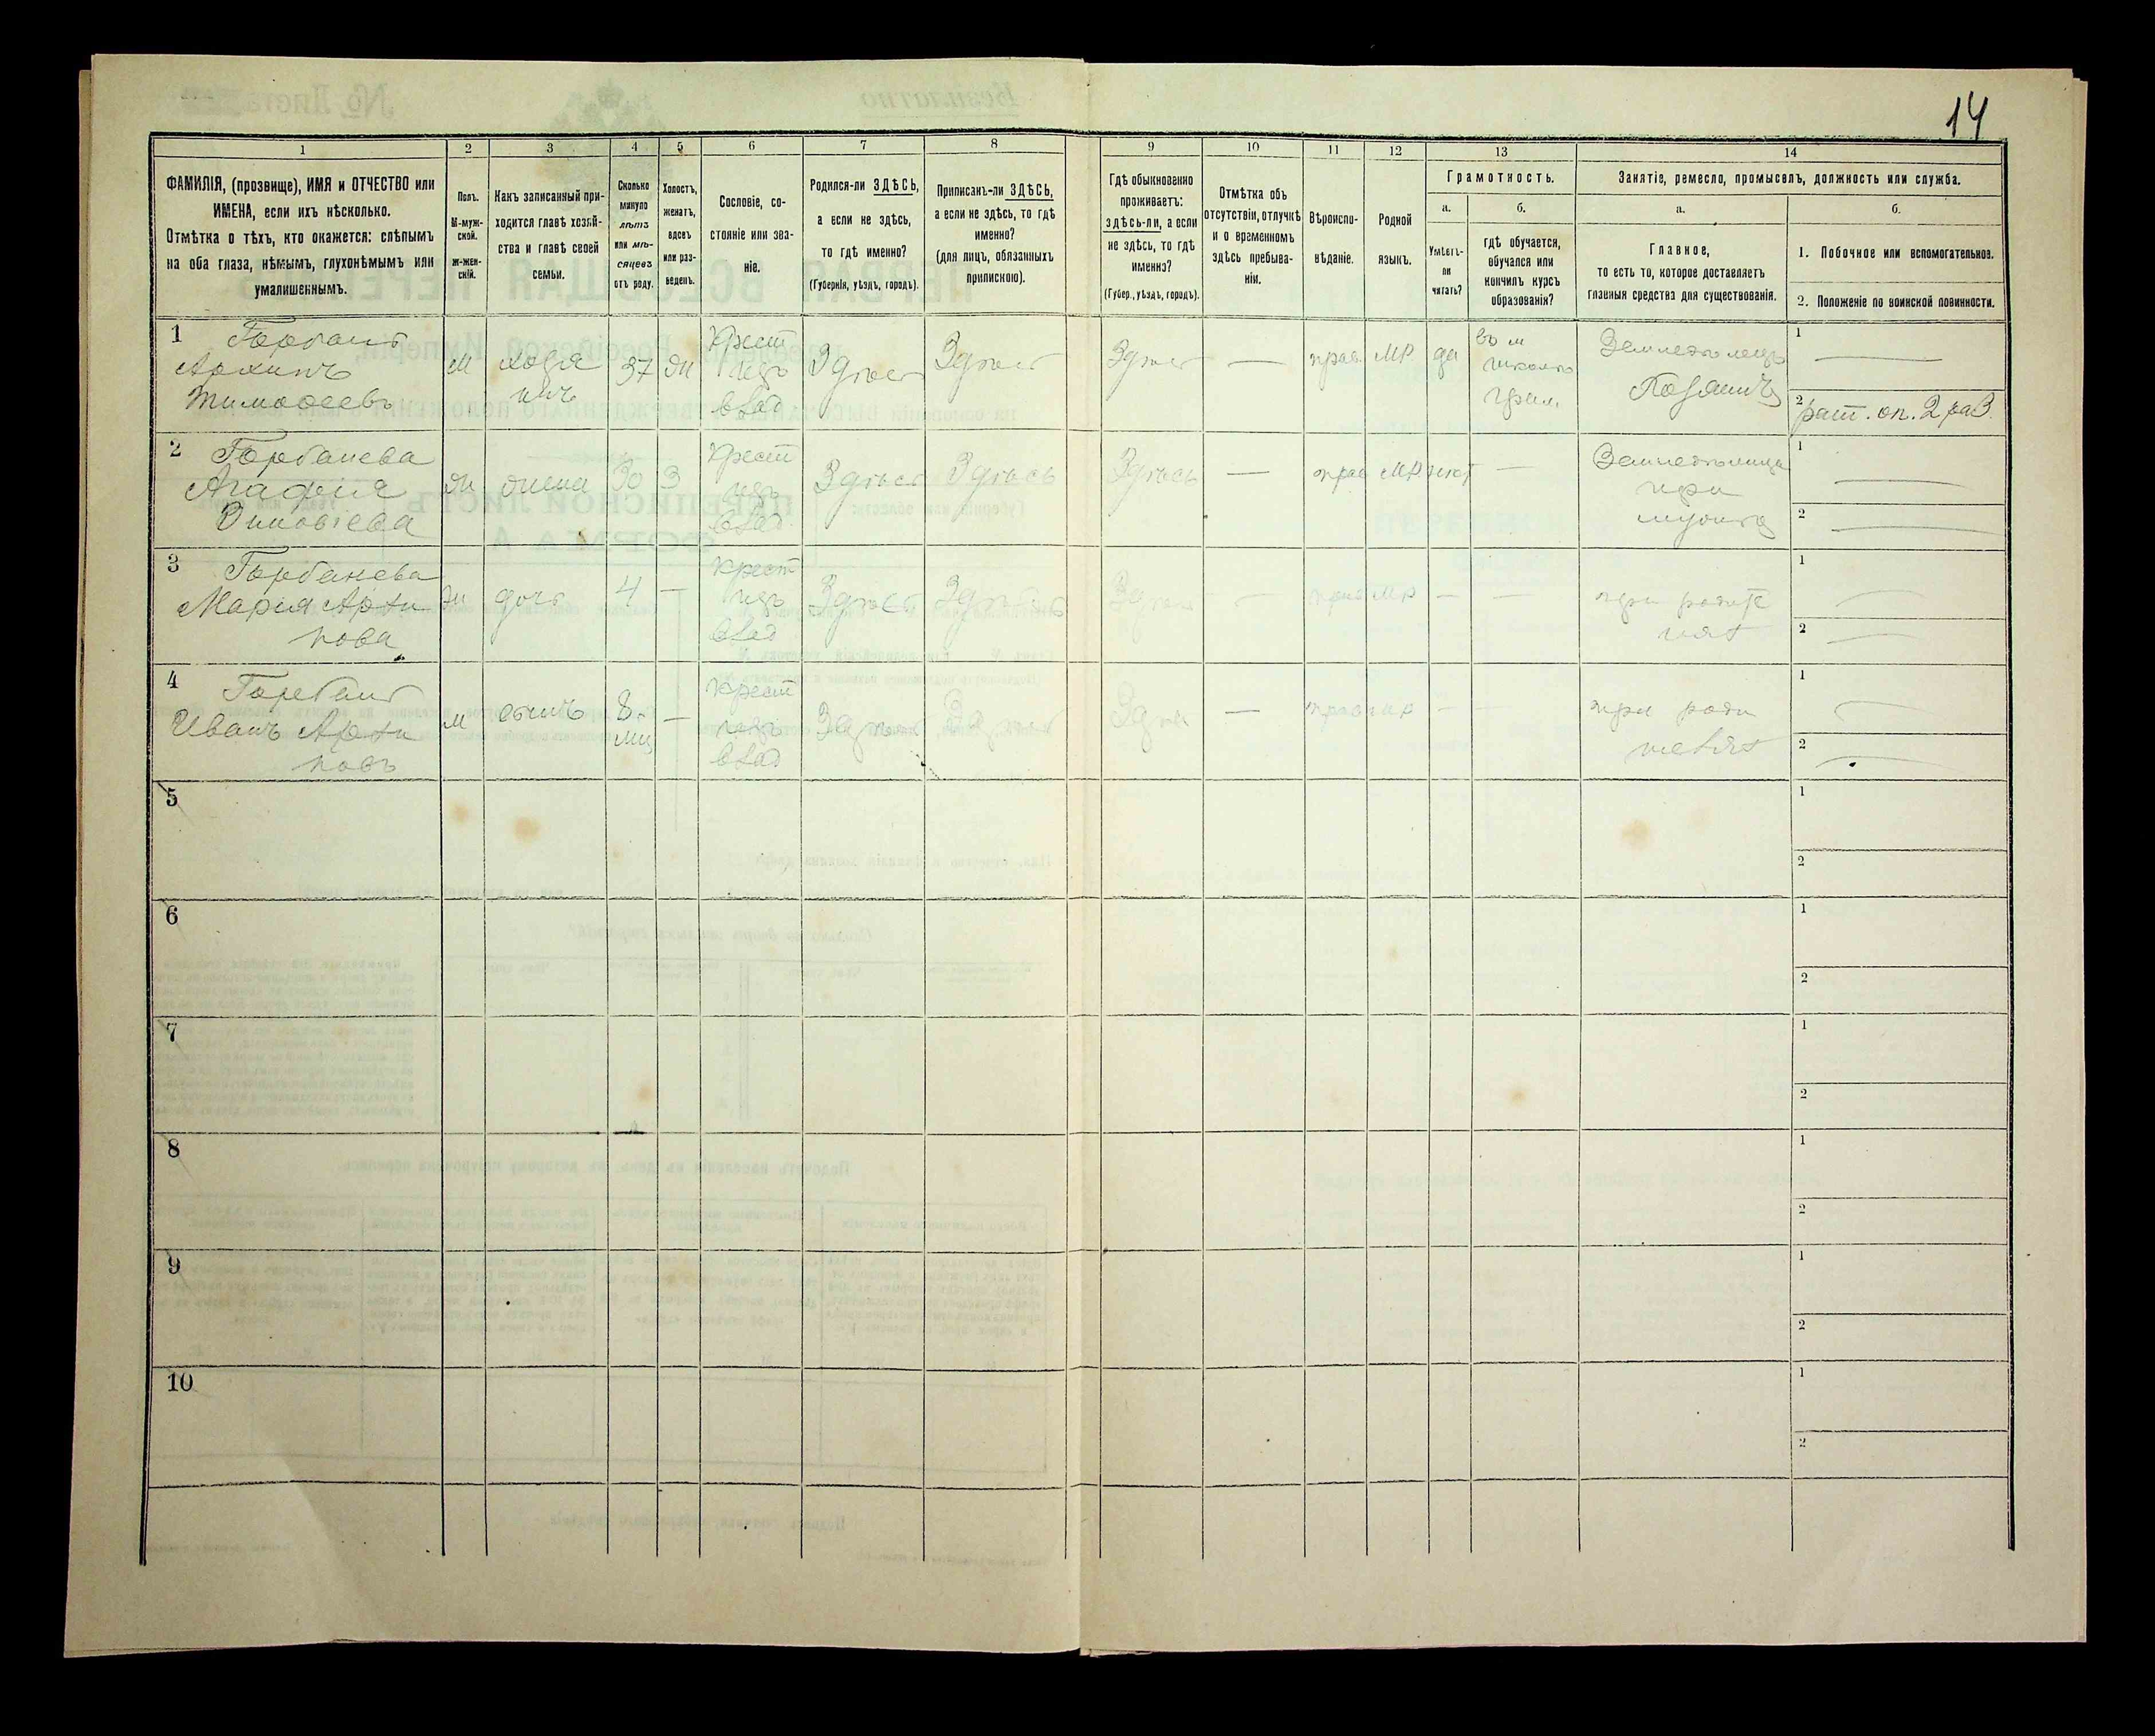 14
1
2
3
4
5
6
7
8
9
10
11
12
13
14
ФАМИЛІЯ, (прозвище), ИМЯ и ОТЧЕСТВО или
ИМЕНА, если ихъ нѣсколько.
Отмѣтка о тѣхъ, кто окажется: слѣпымъ
на оба глаза, нѣмымъ, глухонѣмымъ или
умалишеннымъ.
Полъ.
М-муж-
ской.
ж-жен-
скій.
Какъ записанный при-
ходится главѣ хозяй-
ства и главѣ своей
семьи.
Сколько
минуло
лѣтъ
или мѣ-
сяцевъ
отъ роду.
Холостъ,
женатъ,
вдовъ
или раз-
веденъ.
Сословіе, со-
стояніе или зва-
ніе.
Родился-ли ЗДѢСЬ,
а если не здѣсь,
то гдѣ именно?
(Губернія, уѣздъ, городъ).
Приписанъ-ли ЗДѢСЬ,
а если не здѣсь, то гдѣ
именно?
(для лицъ, обязанныхъ
припискою).
Гдѣ обыкновенно
проживаетъ:
здѣсь-ли, а если
не здѣсь, то гдѣ
именно?
(Губер., уѣздъ, городъ).
Отмѣтка объ
отсутствіи, отлучкѣ
и о временномъ
здѣсь пребыва-
ніи.
Вѣроиспо-
вѣданіе.
Родной
языкъ.
Грамотность.
а.
б.
Умѣетъ-
ли
читать?
гдѣ обучается,
обучался или
кончилъ курсъ
образованія?
Занятіе, ремесло, промыселъ, должность или служба.
а.
б.
Главное,
то есть то, которое доставляетъ
главныя средства для существованія.
1. Побочное или вспомогательное.
2. Положеніе по воинской повинности.
1 Горбань
Архипъ
Тимофеевъ
М
хозя
инъ
37
Ж
крест
влад
Здѣсь
Здѣсь
Здѣсь
—
прав.
МР.
да
школѣ
Земледѣлецъ
Хозяинъ
1 —
2 рат. оп. 2 раз.
2 Горбанева
Агафія
Зиновіева
Ж
жена
30
З
крест
влад
Здѣсь
Здѣсь
Здѣсь
—
прав
МР.
нет
—
Земледѣлица
при
мужѣ
1 —
2 —
3 Горбанева
Марія Архи
пова
Ж
дочь
4
—
крест
влад
Здѣсь
Здѣсь
Здѣсь
—
прав
МР
—
—
при родите
лях
1 —
2 —
4 Горбань
Иванъ Архи
повъ
М
сынъ
8
мц
—
крест
влад
Здѣсь
Здѣсь
Здѣсь
—
прав
МР
—
—
при роди
телях
1 —
2 —
5
1
2
6
1
2
7
1
2
8
1
2
9
1
2
10
1
2